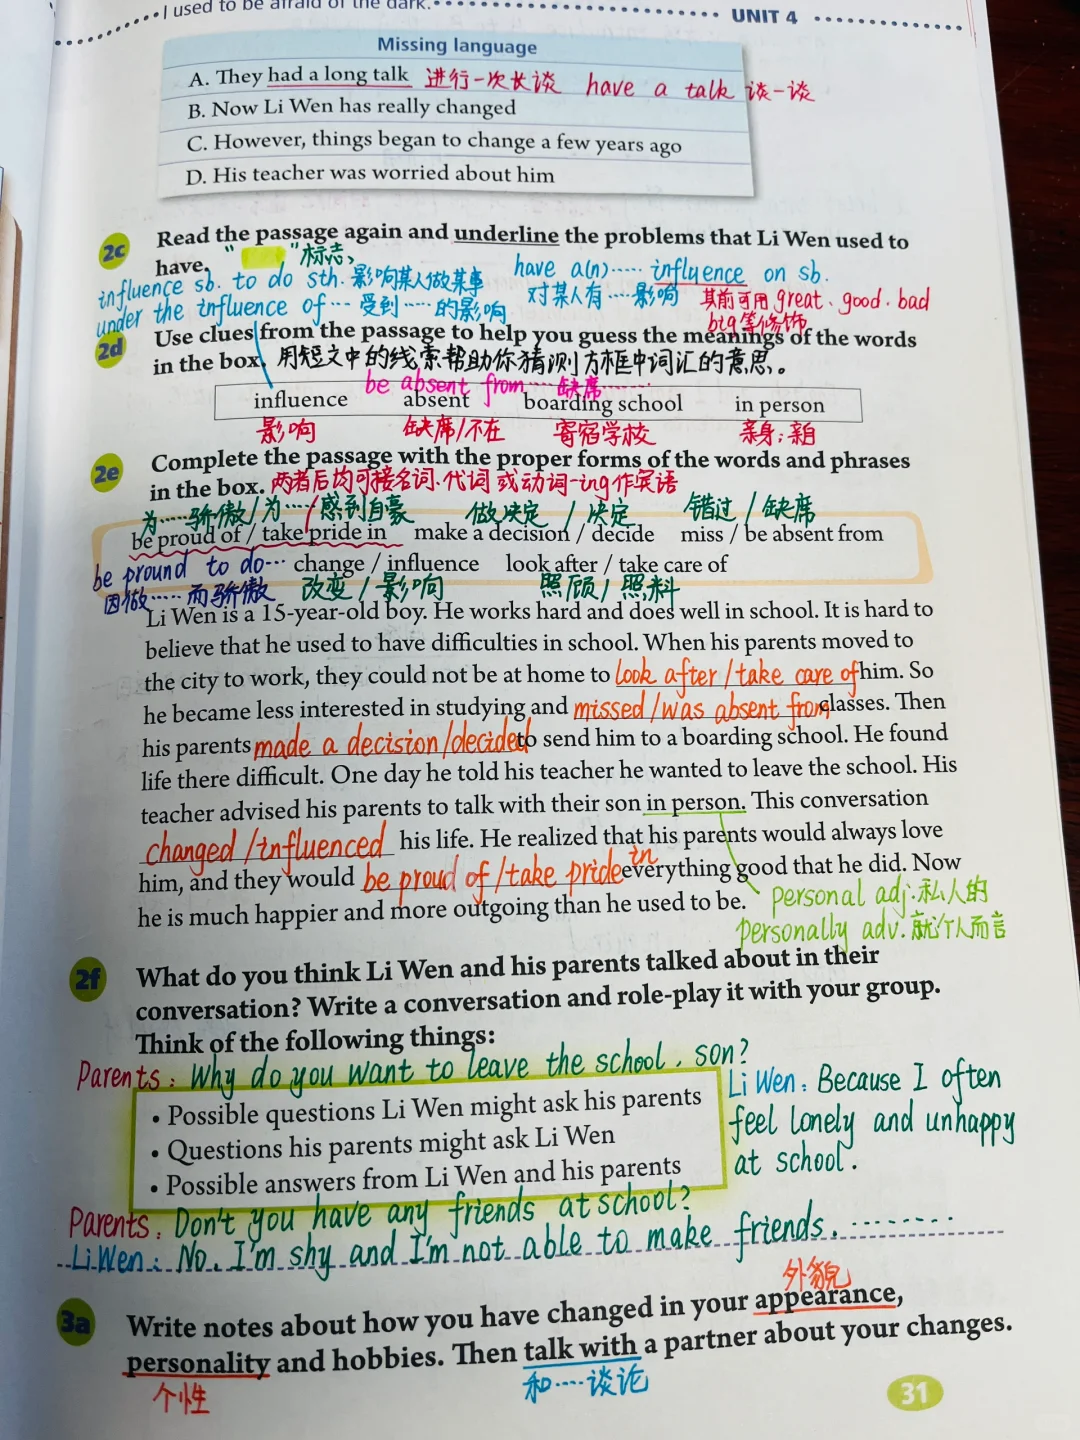 I used to be afraid of the dark.
UNIT 4
Missing language
A. They had a long talk 进行一次长谈 have a talk 谈一谈
B. Now Li Wen has really changed
C. However, things began to change a few years ago
D. His teacher was worried about him
2c Read the passage again and underline the problems that Li Wen used to
have. “ ”标志、
influence sb. to do sth. 影响某人做某事 have a(n)…… influence on sb.
under the influence of… 受到……的影响 对某人有…影响 其前可用great、good、bad
big等修饰
2d Use clues from the passage to help you guess the meanings of the words
in the box. 用短文中的线索帮助你猜测方框中词汇的意思。
be absent from…… 缺席……
influence absent boarding school in person
影响 缺席/不在 寄宿学校 亲身;亲自
2e Complete the passage with the proper forms of the words and phrases
in the box. 两者后均可接名词、代词或动词-ing作宾语
为……骄傲/为……感到自豪 做决定/决定 错过/缺席
be proud of / take pride in make a decision / decide miss / be absent from
be pround to do… change / influence look after / take care of
因做……而骄傲 改变/影响 照顾/照料
Li Wen is a 15-year-old boy. He works hard and does well in school. It is hard to
believe that he used to have difficulties in school. When his parents moved to
the city to work, they could not be at home to look after/take care of him. So
he became less interested in studying and missed/was absent from classes. Then
his parents made a decision/decided to send him to a boarding school. He found
life there difficult. One day he told his teacher he wanted to leave the school. His
teacher advised his parents to talk with their son in person. This conversation
changed/influenced his life. He realized that his parents would always love
him, and they would be proud of/take pride in everything good that he did. Now
he is much happier and more outgoing than he used to be. personal adj.私人的
personally adv.就个人而言
2f What do you think Li Wen and his parents talked about in their
conversation? Write a conversation and role-play it with your group.
Think of the following things:
Parents: Why do you want to leave the school, son?
• Possible questions Li Wen might ask his parents
• Questions his parents might ask Li Wen
• Possible answers from Li Wen and his parents
Li Wen: Because I often
feel lonely and unhappy
at school.
Parents: Don't you have any friends at school?
Li Wen: No. I'm shy and I'm not able to make friends. ………
外貌
3a Write notes about how you have changed in your appearance,
personality and hobbies. Then talk with a partner about your changes.
个性 和……谈论
31